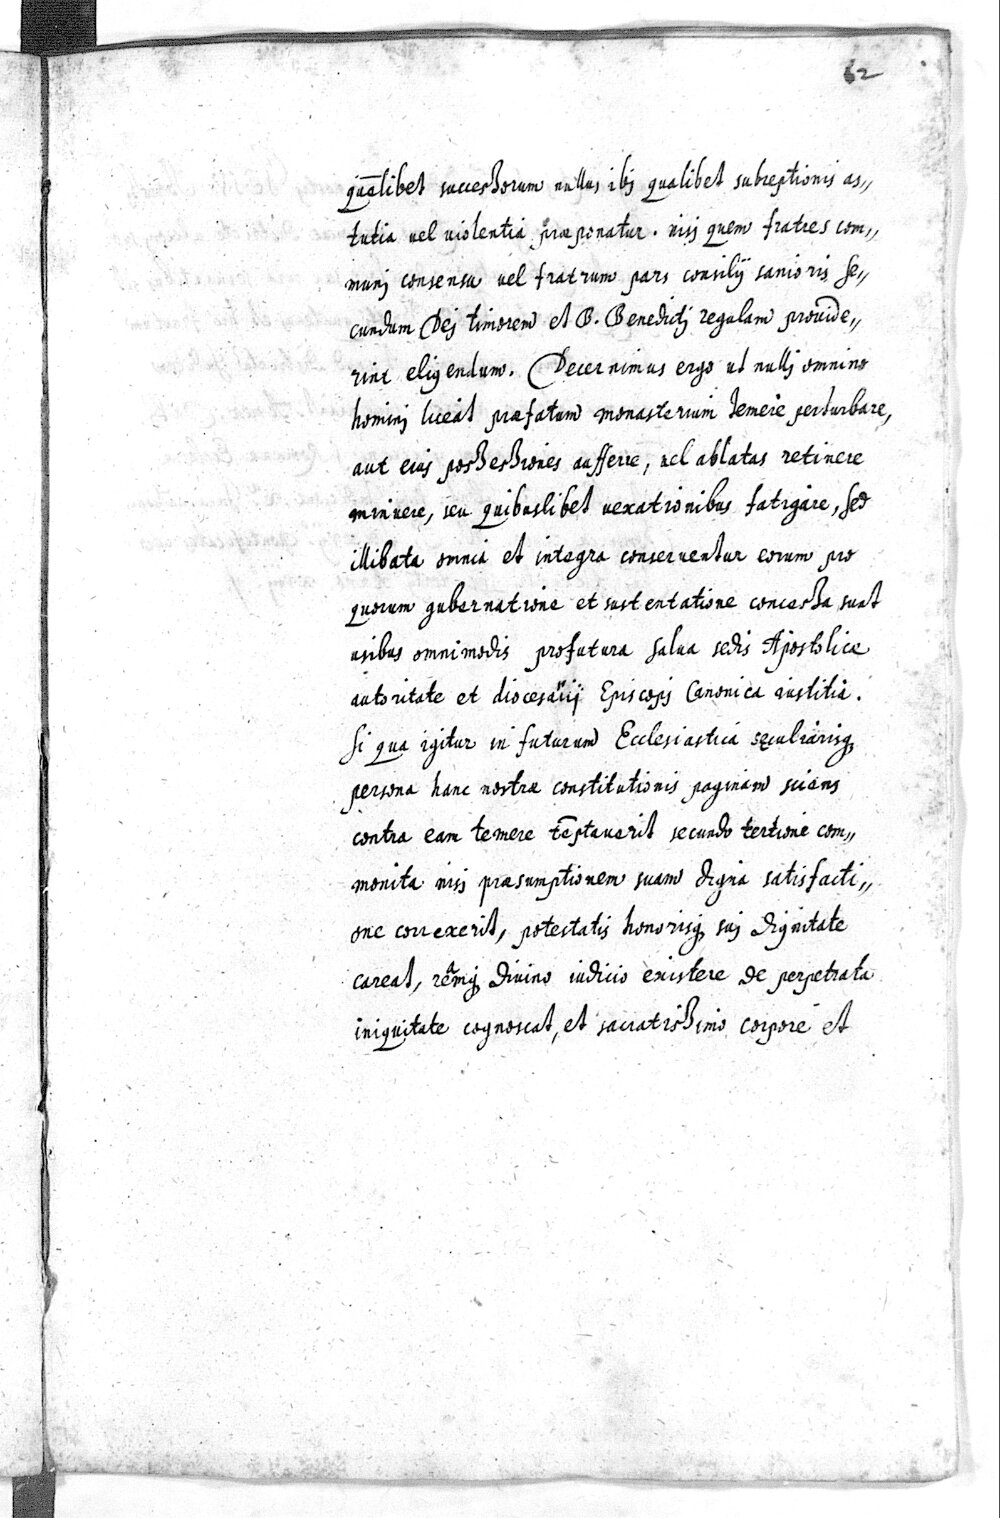 62
qua͞libet successorum nullus ibj qualibet subreptionis as„
tutia vel violentia præponatur. nisj quem fratres com„
munj consensu vel fratrum pars consilij sanioris se„
cundum Dej timorem et B. Benedictj regulam provide„
rint eligendum. Decernimus ergo ut nullj omnino
hominj liceat præfatum monasterium temere perturbare,
aut eius possessiones aufferre, vel ablatas retinere
minuere, seu quibuslibet vexationibus fatigare, sed
illibata omnia et integra conserventur eorum pro
quorum gubernatione et sustentatione concessa sunt
usibus omnimodis profutura salva sedis Apostolice
autoritate et diocesanij Episcopj Canonica iustitia.
Si qua igitur in futurum Ecclesiastica sęcularisq;
persona hanc nostræ constitutionis paginam sciens
contra eam temere te͞ptaverit secundo tertione com„
monita nisj præsumptionem suam digna satisfacti„
one correxerit, potestatis honorisq; suj dignitate
careat, reamq; divino iudicio existere de perpetrata
iniquitate cognoscat, et sacratissimo corpore et